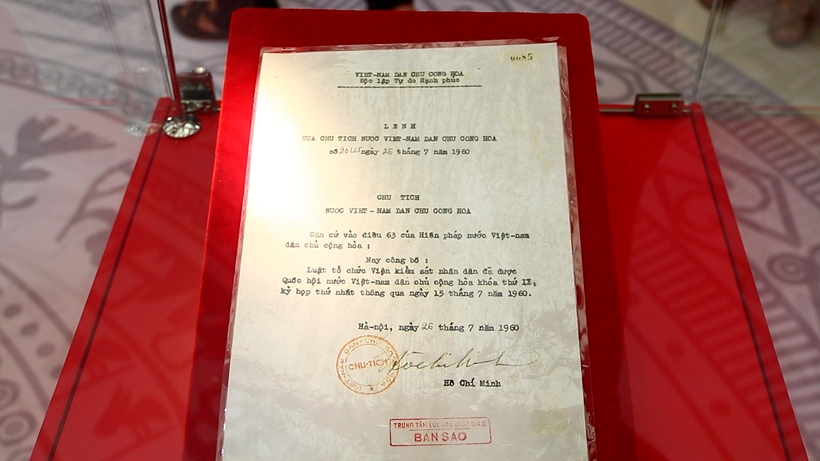 0085
VIỆT-NAM DÂN CHU CONG HOA
Độc lập Tự do Hạnh phúc
LENH
CUA CHU TICH NUOC VIET-NAM DAN CHU CONG HOA
số ngày 26 tháng 7 năm 1960
CHU TICH
NUOC VIET - NAM DAN CHU CONG HOA
Căn cứ vào điều 63 của Hiến pháp nước Việt-nam
dân chủ cộng hòa :
Nay công bố :
Luật tổ chức Viện kiểm sát nhân dân đã được
Quốc hội nước Việt-nam dân chủ cộng hòa khóa thứ II,
kỳ họp thứ nhất thông qua ngày 15 tháng 7 năm 1960.
Hà-nội, ngày 26 tháng 7 năm 1960
VIỆT-NAM DAN-CHU
CHU-TICH
Hồ Chí Minh
TRUNG TÂM LƯU TRỮ QUỐC GIA III
BẢN SAO